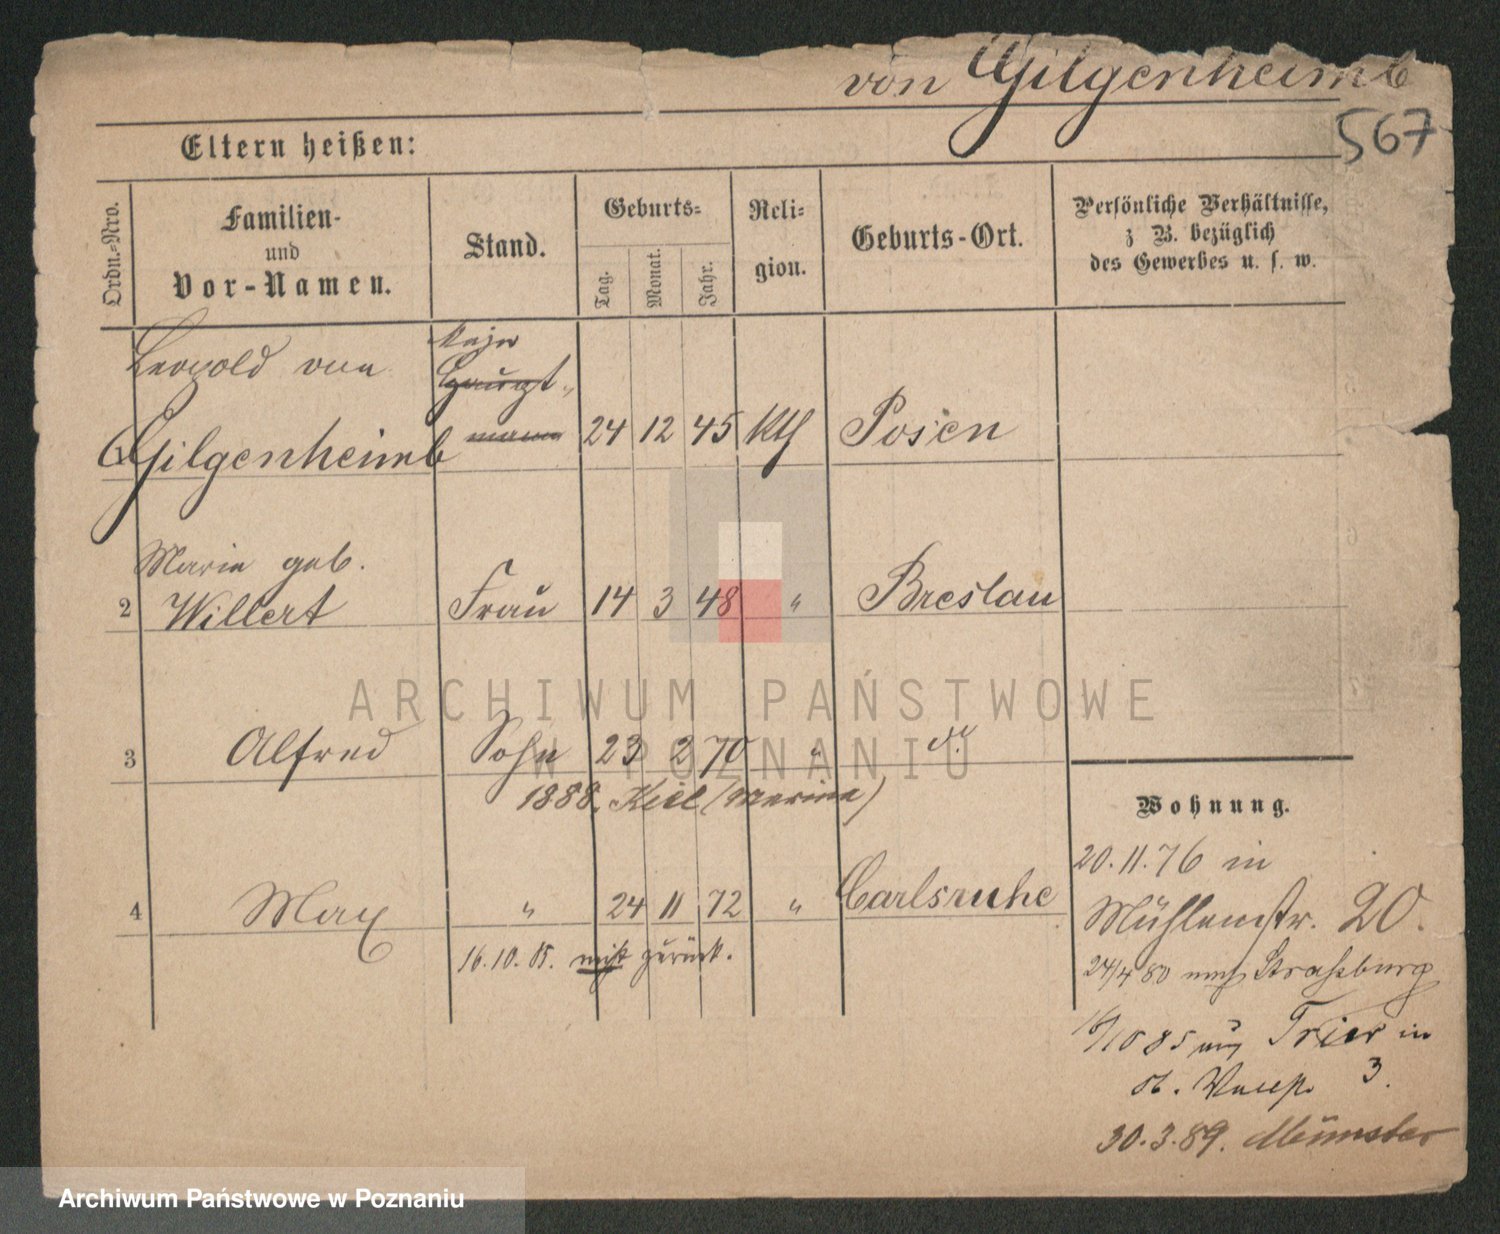 von Gilgenheimb
567
Eltern heißen:
Ordn.=Nro.
Familien-
und
Vor-Namen.
Stand.
Geburts=
Tag.
Monat.
Jahr.
Reli=
gion.
Geburts-Ort.
Persönliche Verhältnisse,
z B. bezüglich
des Gewerbes u. s. w.
Leopold von Major
Haupt-
1 Gilgenheimb mann 24 12 45 kth Posen
Marie geb.
2 Willert Frau 14 3 48 " Breslau
3 Alfred Sohn 23 2 70 " do
1888. Kiel (Marine)
4 Max " 24 11 72 " Carlsruhe
16.10.85. zurück.
Wohnung.
20.11.76 in
Mühlenstr. 20.
24/4 80 nach Straßburg
16/10 85 aus Trier in
3.
30.3.89. Münster
ARCHIWUM PAŃSTWOWE
W POZNANIU
Archiwum Państwowe w Poznaniu